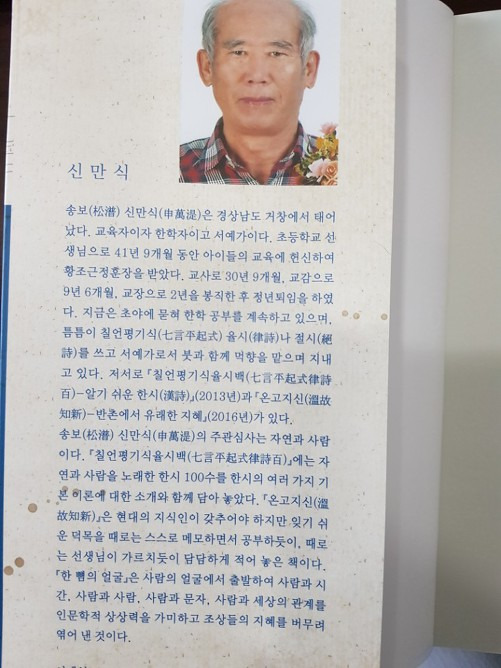 신만식
송보(松潽) 신만식(申萬湜)은 경상남도 거창에서 태어
났다. 교육자이자 한학자이고 서예가이다. 초등학교 선
생님으로 41년 9개월 동안 아이들의 교육에 헌신하여
황조근정훈장을 받았다. 교사로 30년 9개월, 교감으로
9년 6개월, 교장으로 2년을 봉직한 후 정년퇴임을 하였
다. 지금은 초야에 묻혀 한학 공부를 계속하고 있으며,
틈틈이 칠언평기식(七言平起式) 율시(律詩)나 절시(絕
詩)를 쓰고 서예가로서 붓과 함께 먹향을 맡으며 지내
고 있다. 저서로 『칠언평기식율시백(七言平起式律詩
百)-알기 쉬운 한시(漢詩)』(2013년)과 『온고지신(溫故
知新)-반촌에서 유래한 지혜』(2016년)가 있다.
송보(松潽) 신만식(申萬湜)의 주관심사는 자연과 사람
이다. 『칠언평기식율시백(七言平起式律詩百)』에는 자
연과 사람을 노래한 한시 100수를 한시의 여러 가지 기
본 이론에 대한 소개와 함께 담아 놓았다. 『온고지신(溫
故知新)』은 현대의 지식인이 갖추어야 하지만 잊기 쉬
운 덕목을 때로는 스스로 메모하면서 공부하듯이, 때로
는 선생님이 가르치듯이 담담하게 적어 놓은 책이다.
『한 뼘의 얼굴』은 사람의 얼굴에서 출발하여 사람과 시
간, 사람과 사람, 사람과 문자, 사람과 세상의 관계를
인문학적 상상력을 가미하고 조상들의 지혜를 버무려
엮어 낸 것이다.